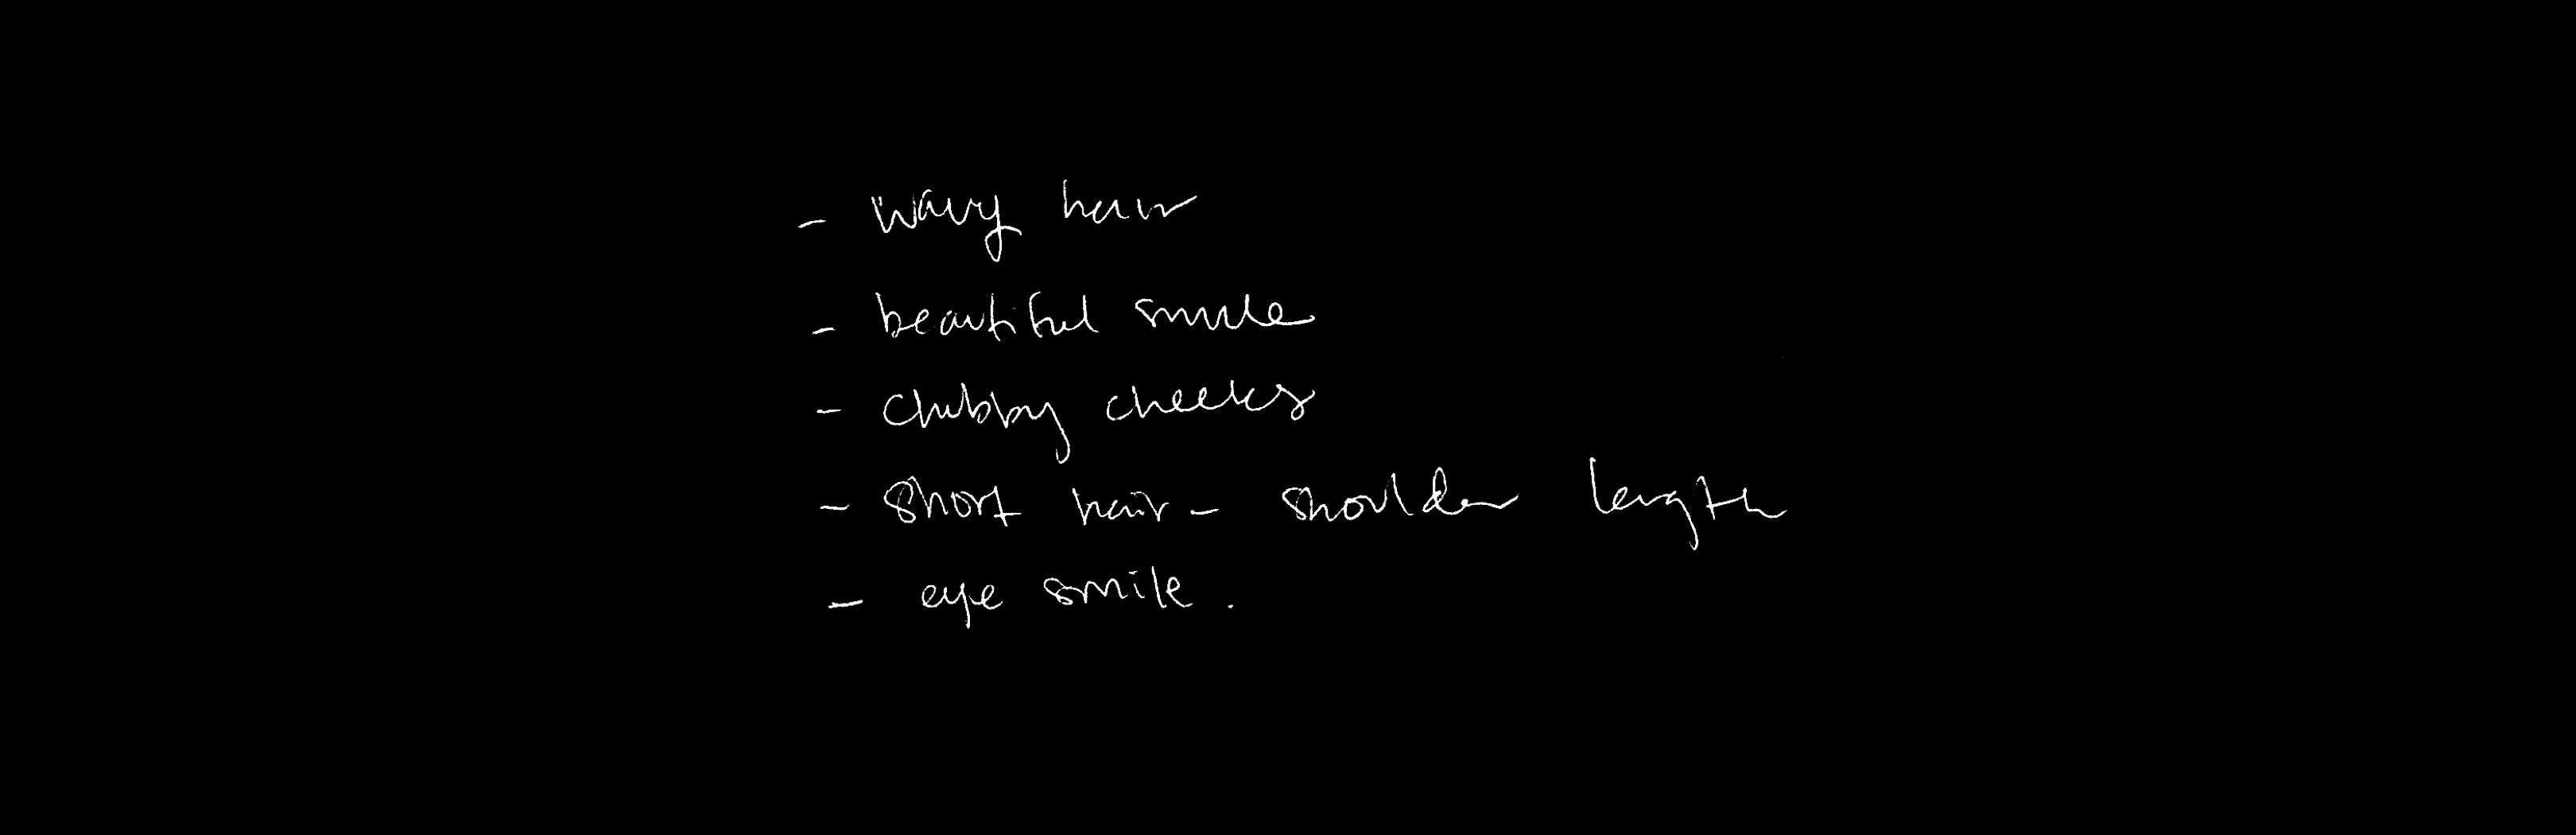 - wavy hair
- beautiful smile
- chubby cheeks
- short hair - shoulder length
- eye smile.